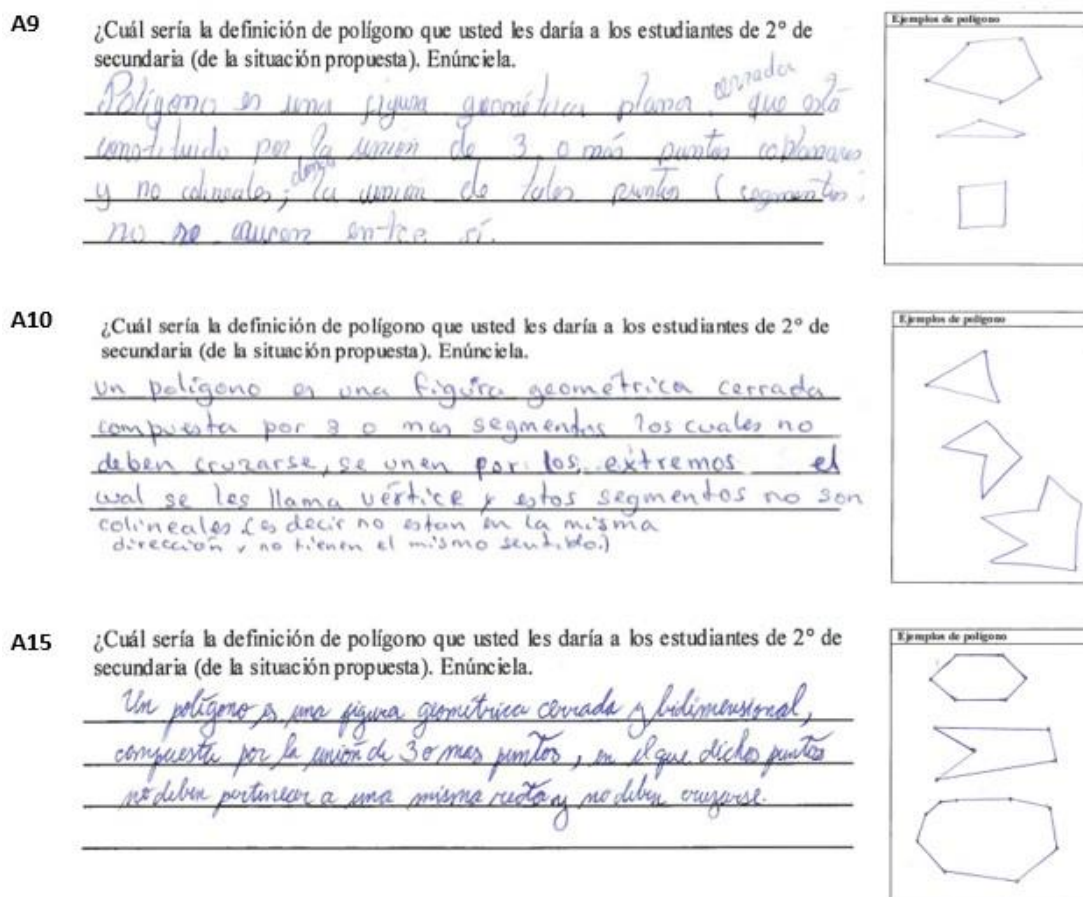 A9
¿Cuál sería la definición de polígono que usted les daría a los estudiantes de 2° de
secundaria (de la situación propuesta). Enúnciela.
Polígono es una figura geométrica plana cerrada que está
constituido por la unión de 3 o más puntos coplanares
y no colineales; donde la unión de tales puntos (segmentos)
no se crucen entre sí.
Ejemplos de polígono
A10
¿Cuál sería la definición de polígono que usted les daría a los estudiantes de 2° de
secundaria (de la situación propuesta). Enúnciela.
un polígono es una figura geométrica cerrada
compuesta por 3 o mas segmentos los cuales no
deben cruzarse, se unen por los extremos el
cual se les llama vértice y estos segmentos no son
colineales (es decir no estan en la misma
dirección y no tienen el mismo sentido.)
Ejemplos de polígono
A15
¿Cuál sería la definición de polígono que usted les daría a los estudiantes de 2° de
secundaria (de la situación propuesta). Enúnciela.
Un polígono es una figura geométrica cerrada y bidimensional,
compuesta por la unión de 3 o mas puntos, en el que dichos puntos
no deben pertenecer a una misma recta y no deben cruzarse.
Ejemplos de polígono